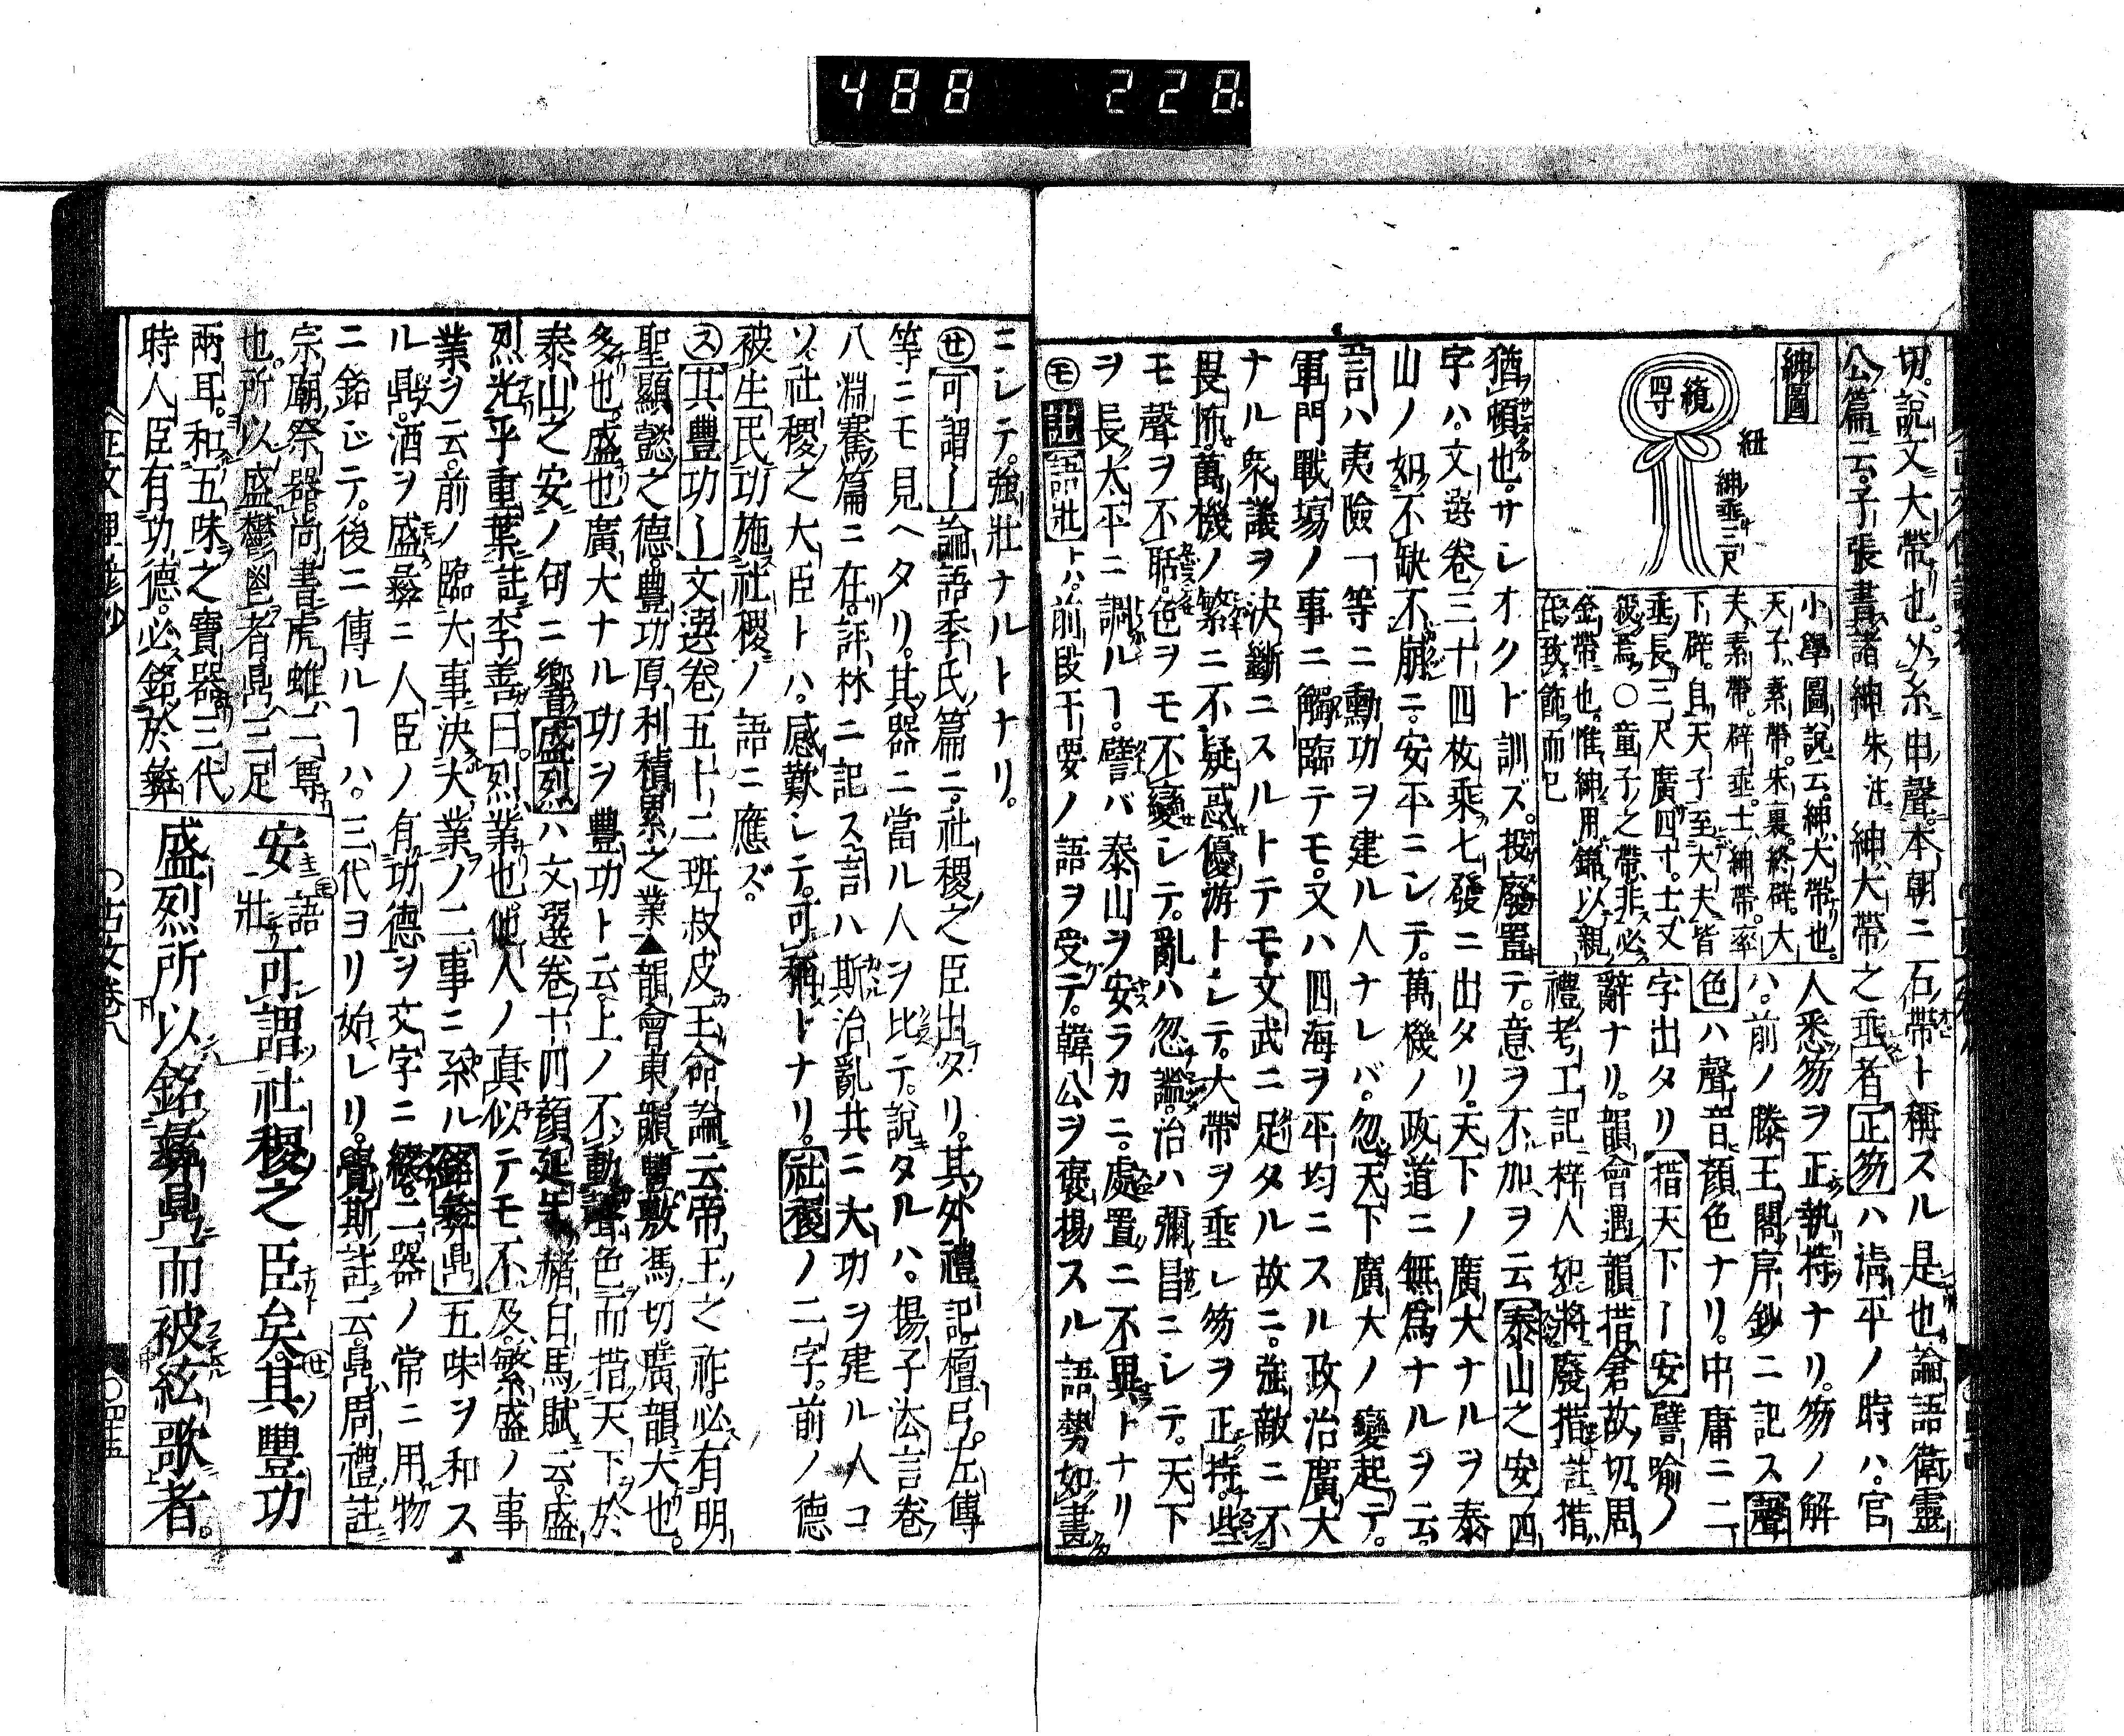 488 228
切。說文大帶也。从糸申聲。本朝ニ石帶ト稱スル是也。論語衛靈
公篇ニ云。子張書諸紳朱注紳大帶之垂者正笏ハ清平ノ時ハ。官
紳圖
繞四寸
紐
紳垂三尺
小學圖說云。紳大帶也。
天子素帶。朱裏。終辟。大
夫素帶。辟垂。士紳帶。率
下辟。自天子至大夫皆
垂長三尺廣四寸。士
〇童子之帶非必
金帶也。惟紳用錦以親
在致飾而已
人悉笏ヲ正執持ナリ。笏ノ解
ハ。前ノ滕王閣序鈔ニ記ス聲
色ハ聲音顏色ナリ。中庸ニ二
字出タリ措天下ー安譬喩ノ
辭ナリ。韻會遇韻措倉故切。周
禮考工記梓人 將廢措註措
猶頓也。サレオクト訓ズ。投廢置テ。意ヲ不加ヲ云泰山之安ノ四
字ハ。文選卷三十四枚乘七發ニ出タリ。天下ノ廣大ナルヲ泰
山ノ如不缺不崩ニ。安平ニレテ。萬機ノ政道ニ無爲ナルヲ云。
言ハ夷險一等ニ勳功ヲ建ル人ナレバ。忽天下廣大ノ變起テ。
軍門戰場ノ事ニ觸臨テモ。又ハ四海ヲ平均ニスル政治廣大
ナル衆議ヲ決斷ニスルトテモ。文武ニ足タル故ニ。強敵ニ不
畏怖。萬機ノ繁ニ不疑惑。優游トレテ。大帶ヲ垂レ笏ヲ正持。些
モ聲ヲ不聒。色ヲモ不變レテ。亂ハ忽論。治ハ彌昌ニレテ。天下
ヲ長太平ニ調ルヿ。譬バ泰山ヲ安ラカニ。處置ニ不異トナリ
モ 語壯トハ。前段干要ノ語ヲ受テ。韓公ヲ褒揚スル語勢如畫
ニレテ。強壯ナルトナリ。
セ 可謂ー論語季氏篇ニ。社稷之臣出タリ。其外禮記。檀弓。左傳
等ニモ見ヘタリ。其器ニ當ル人ヲ比テ。說タルハ。揚子法言卷
八淵騫篇ニ在。評林ニ記ス言ハ斯治亂共ニ大功ヲ建ル人コ
ソ社稷之大臣トハ。感歎レテ。可稱トナリ。社稷ノ二字。前ノ德
被生民功施社稷ノ語ニ應ズ。
ス 其豐功ー文選卷五十二班叔皮王命論云帝王之祚必有明
聖顯懿之德。豐功厚利積累之業▲韻會東韻豐敷馮切。廣韻大也。
多也。盛也廣大ナル功ヲ豐功ト云。上ノ不動聲色而措天下於
泰山之安ノ句ニ響盛烈ハ文選卷十四顏延年赭白馬賦云。盛
烈光乎重葉註李善曰。烈業也。他人ノ眞似テモ不及。繁盛ノ事
業ヲ云。前ノ臨大事決大業ノ二事ニ系ル銘彝鼎五味ヲ和ス
ル鼎。酒ヲ盛彝ニ人臣ノ有功德ヲ文字ニ綴。二器ノ常ニ用物
ニ銘ジテ。後ニ傳ルヿハ。三代ヨリ始レリ。覺斯註云。鼎周禮註
宗廟祭器。尚書虎蜼二尊
也。所以盛鬱鬯者鼎三足
兩耳。和五味之寶器三代
時人臣有功德。必銘於彝
安 語壯 可謂社稷之臣矣。其豐功
盛烈所以銘彝鼎而被絃歌者。
古文卷八
〇四十五